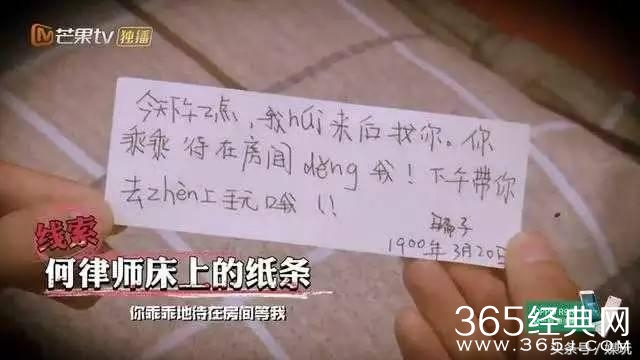 芒果tv 独播
今天下午2点,我húi来后找你。你
乖乖待在房间děng我!下午带你
去zhèn上玩哦!!
骗子
1900年3月20日
线索
何律师床上的纸条
你乖乖地待在房间等我
365经典网